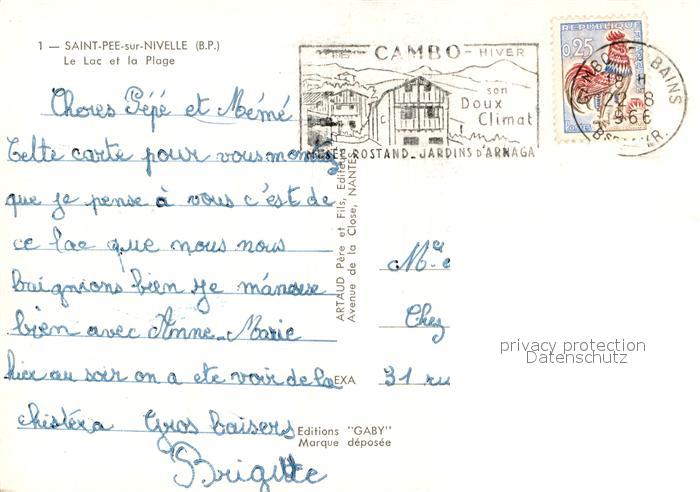 1 — SAINT-PEE-sur-NIVELLE (B.P.)
Le Lac et la Plage
CAMBO - HIVER
son
Doux
Climat
MUSÉE ROSTAND_JARDINS D'ARNAGA
REPUBLIQUE FRANCAISE
0,25
POSTES
BAINS
22 - 8
1966
Cheres Pépé et Mémé
Cette carte pour vous montrer
que je pense à vous c'est de
ce lac que nous nous
baignions bien je m'amuse
bien avec Anne-Marie
hier au soir on a ete voir de la
chistera Gros baisers
Brigitte
ARTAUD Père et Fils, Editeurs
Avenue de la Close, NANTES
EXA
Editions "GABY"
Marque déposée
Chez
31 ru
privacy protection
Datenschutz